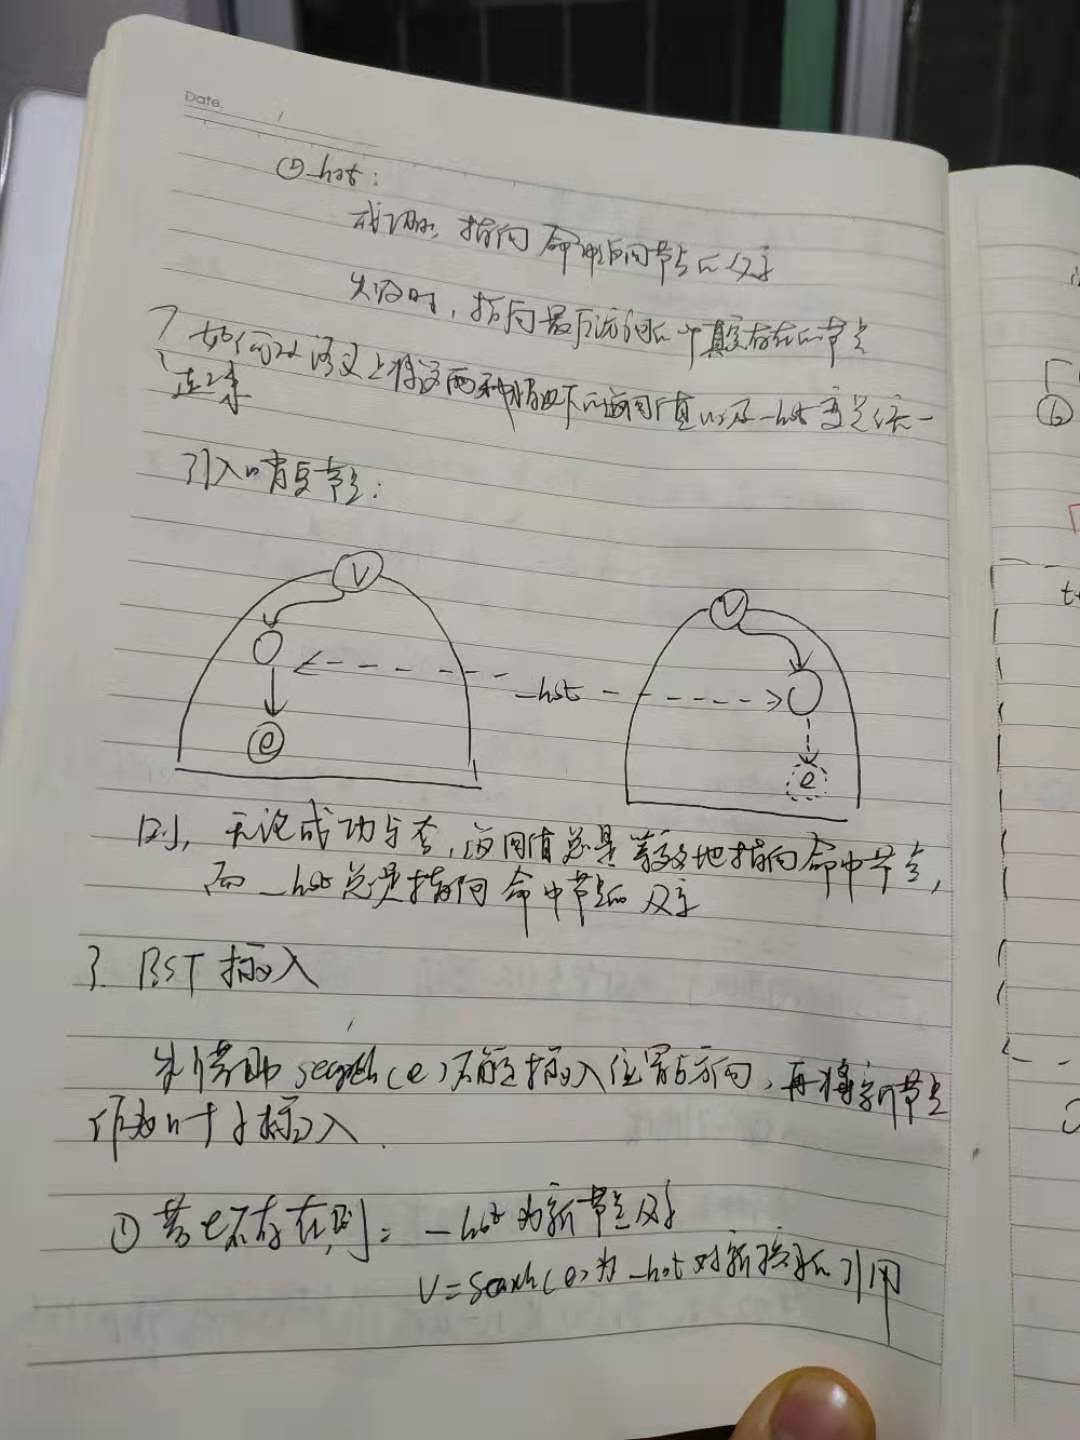 Date. /
② _hot:
成功时, 指向命中的节点的父亲
失败时, 指向最后访问的一个真实存在的节点
? 如何从语义上将这两种情况下的返回值以及_hot变得统一
起来
引入哨兵节点:
V V
_hot
e e
则, 无论成功与否, 返回值总是等效地指向命中节点,
而_hot总是指向命中节点的父亲
3. BST 插入
先借助 search(e) 确定插入位置与方向, 再将新节点
作为叶子插入.
① 若e不存在, 则: _hot为新节点父亲
V=Search(e)为_hot对新孩子的引用
t
⑥